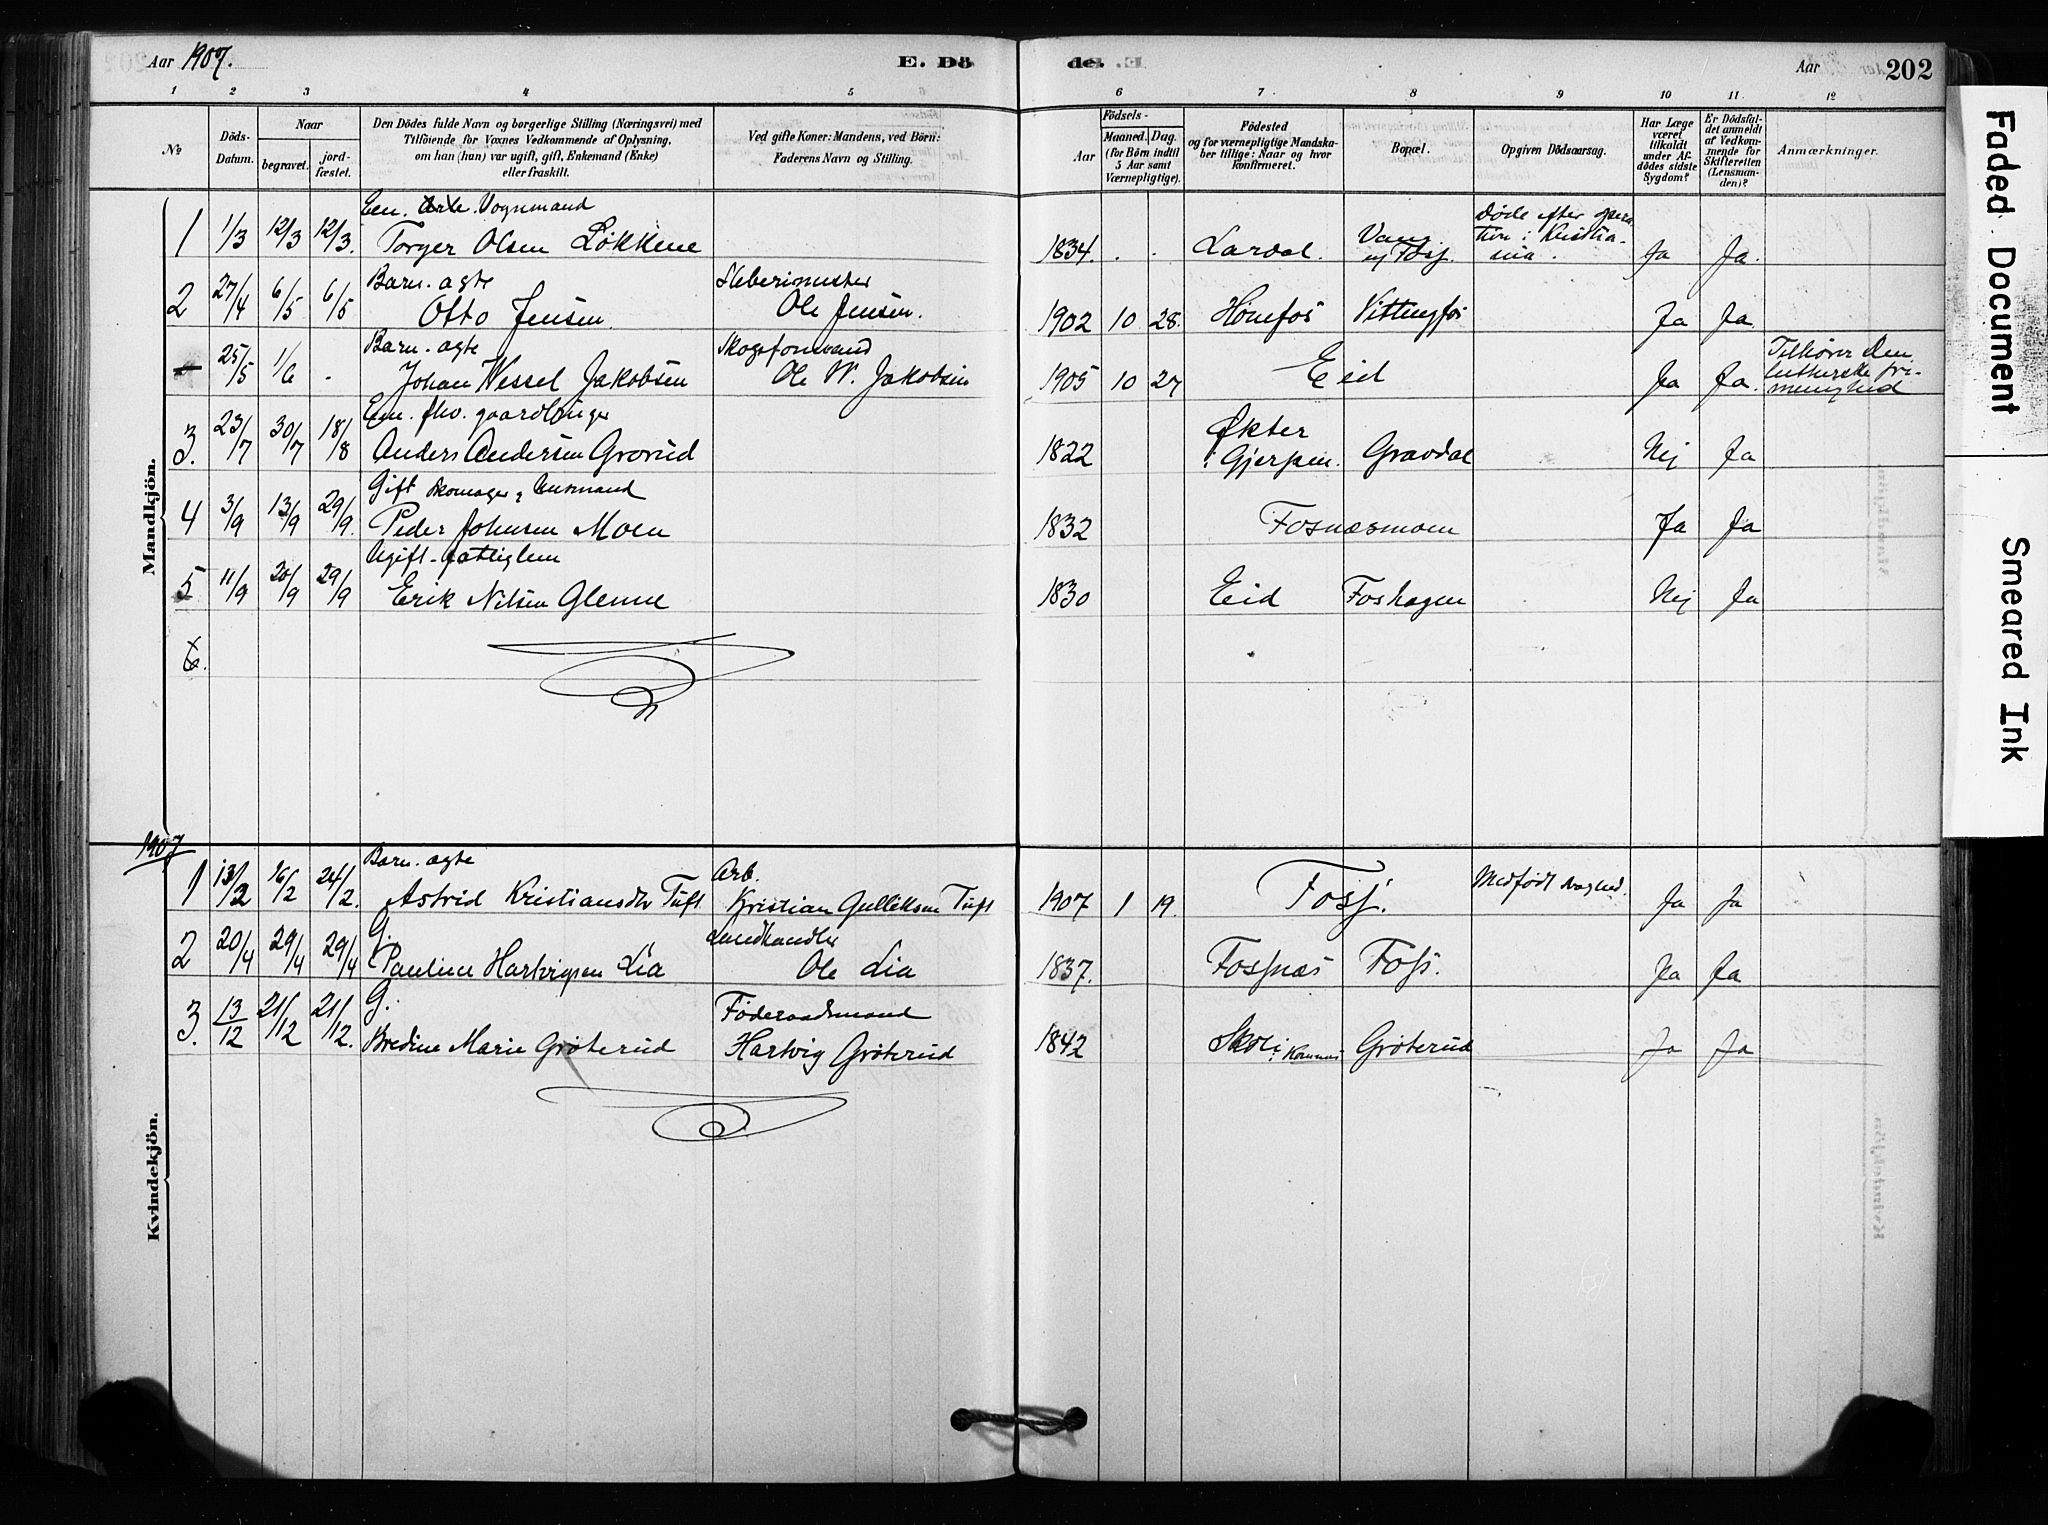 Aar 1907.
E. Dö
de.
Aar
202
1 2 3 4 5
6 7 8 9 10 11 12
№
Döds-Datum.
Naar
begravet.
jord-fæstet.
Den Dödes fulde Navn og borgerlige Stilling (Næringsvei) med
Tilföiende for Voxnes Vedkommende af Oplysning,
om han (hun) var ugift, gift, Enkemand (Enke)
eller fraskilt.
Ved gifte Koner: Mandens, ved Börn:
Faderens Navn og Stilling.
Födsels-
Aar
Maaned.
Dag.
(for Börn indtil
5 Aar samt
Værnepligtige).
Födested
og for værnepligtige Mandska-
ber tillige: Naar og hvor
konfirmeret.
Bopæl.
Opgiven Dödsaarsag.
Har Læge
været
tilkaldt
under Af-
dödes sidste
Sygdom?
Er Dödsfal-
det anmeldt
af Vedkom-
mende for
Skifteretten
(Lensman-
den)?
Anmærkninger.
Mandkjön.
Em. Vognmand
1 1/3 12/3 12/3. Torger Olsen Løkkene 1834. Lardal. Ja Ja.
Døde efter opera-
tion i Kristia-
nia.
Barn. ægte Sliberimester
2 27/4 6/5 6/5 Otto Jensen. Ole Jensen. 1902 10 28. Hønefos Vittingfos Ja Ja.
Barn. ægte
25/5 1/6 - Johan Wessel Jakobsen Ole W. Jakobsen 1905 10 27 Eid Ja Ja.
Tilhører Den
lutherske fri-
menighed
Em. fhv. gaardbruger
3. 23/7 30/7 18/8 Anders Andersen Grorud 1822 Økter
i Gjerpen. Gravdal Nej Ja
Gift skomager, husmand
4 3/9 13/9 29/9. Peder Johnsen Moen 1832 Fosnæsmoen Ja Ja
Ugift. fattiglem
5 11/9 20/9 29/9 Erik Nilsen Glenne 1830 Eid Foshagen Nej Ja
6.
1907
Kvindekjön.
Barn. ægte Arb.
1 13/2 16/2 24/2. Astrid Kristiansdtr Tuft Kristian Gulliksen Tuft 1907 1 19. Foss. Medfødt svaghed. Ja Ja
G. Landhandler
2 20/4 29/4 29/4 Pauline Hartvigsen Lia Ole Lia 1837. Fossnæs Foss. Ja Ja
G. Føderaadsmand
3. 13/12 21/12 21/12. Bredine Marie Grøterud Hartvig Grøterud 1842 Grøterud Ja Ja
Faded Document
Smeared Ink